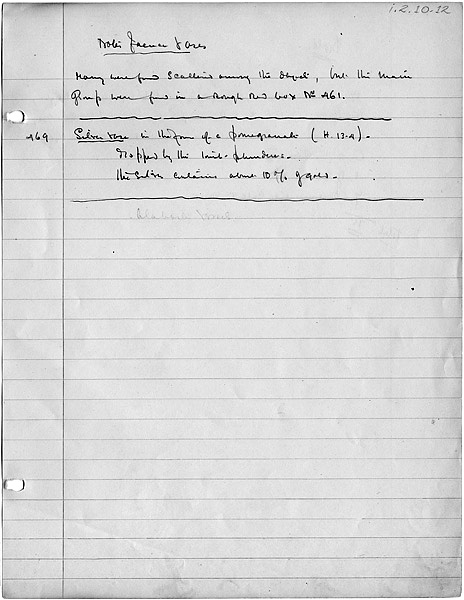 i.2.10-12
Note: Faience Vases
Many were found scattered among the objects, but the main
group were found in a rough red box No 461.
469 Silver vase in the form of a pomegranate (H. 13.4).
Dropped by the tomb-plunderers.
The silver contains about 10% of gold.